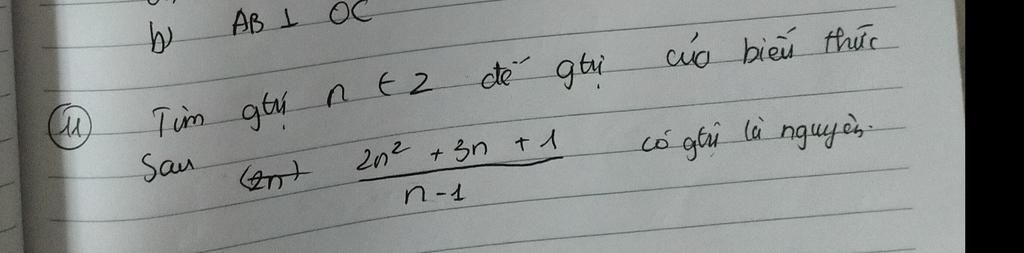 b) AB ⊥ OC
11 Tìm gtrị n ∈ Z để gtrị của biểu thức
Sau (2n) 2n² + 3n + 1 / n - 1 có gtrị là nguyên.